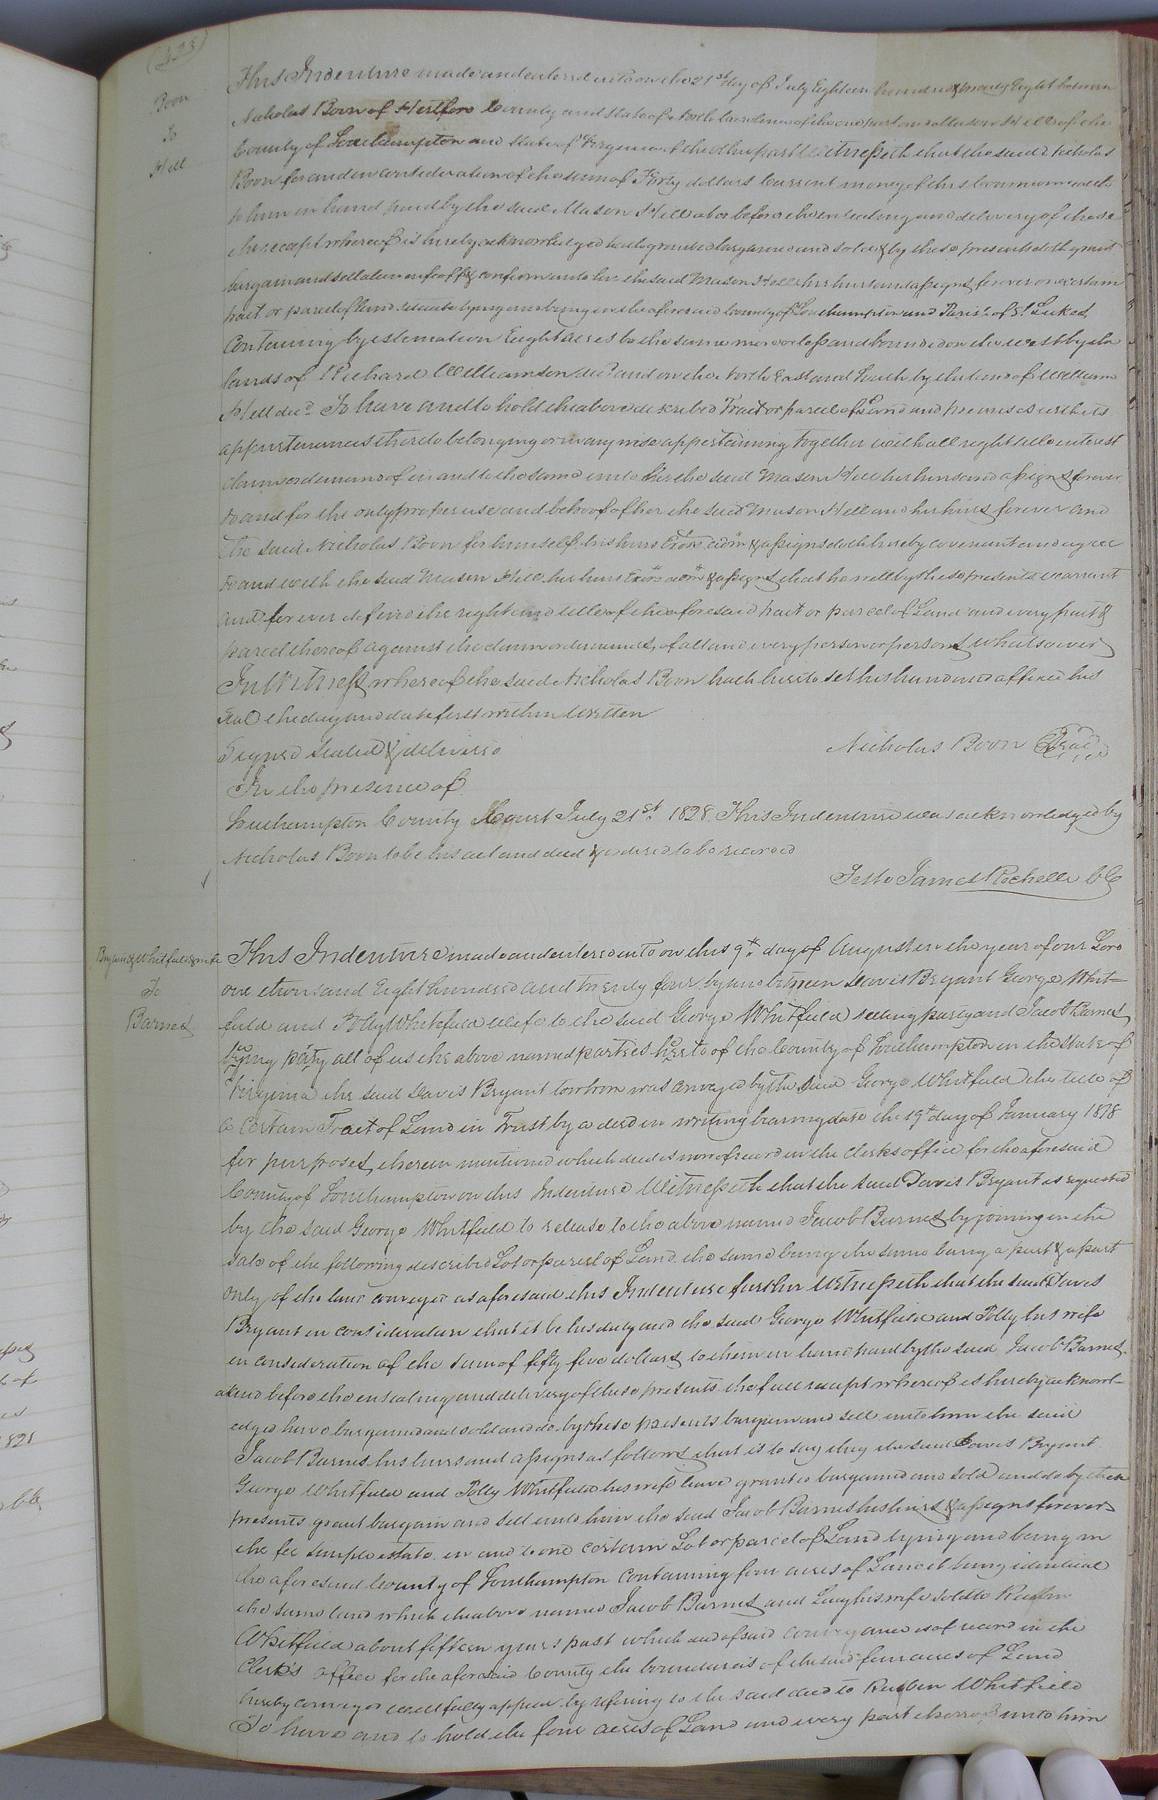 Boon
To
Hill
This Indenture made and entered into on the 21st day of July Eighteen hundred & twenty Eight between
Nicholas Boon of Hertford County and State of North Carolina of the one part and Mason Hill of the
County of Southampton and State of Virginia of the other part Witnesseth that the said Nicholas
Boon for and in consideration of the sum of Forty dollars Current money of this Commonwealth
to him in hand paid by the said Mason Hill at or before the ensealing and delivery of these
the receipt whereof is hereby acknowledged hath granted bargained and sold & by these presents doth grant
bargain and sell alien enfeoff & confirm unto her the said Mason Hill her heirs and assigns forever one certain
tract or parcel of land situate lying and being in the aforesaid County of Southampton and Parish of St. Lukes
Containing by estemation Eight acres be the same more or less and bounded on the west by the
lands of Richard Williamson decd and on the North East and South by the land of William
Hill decd To have and to hold the above described Tract or parcel of Land and premises with its
appurtenances thereto belonging or in any wise appertaining together with all right title interest
claim or demand of in and to the same unto her the said Mason Hill her heirs and assigns forever
to and for the only proper use and behoof of her the said Mason Hill and her heirs forever and
the said Nicholas Boon for himself his heirs Exors admrs & assigns doth hereby covenant and agree
to and with the said Mason Hill her heirs Exors admrs & assigns that he will by these presents warrant
and forever defend the right and title of the aforesaid tract or parcel of Land and every part &
parcel thereof against the claim or demands of all and every person or persons whatsoever
In Witness whereof the said Nicholas Boon hath hereto set his hand and affixed his
seal the day and date first within written
Signed Sealed & delivered
Nicholas Boon Seal
In the presence of
Southampton County Court July 21st 1828. This Indenture was acknowledged by
Nicholas Boon to be his act and deed & ordered to be recorded
Teste James Rochelle CC
Bryant & Whitfield & wife
To
Barnes
This Indenture made and entered into on this 9th day of August in the year of our Lord
one thousand Eight hundred and twenty four by and between Davis Bryant George Whit-
field and Polly Whitfield wife to the said George Whitfield selling party and Jacob Barnes
buying party all of us the above named parties hereto of the County of Southampton in the State of
Virginia the said Davis Bryant to whom was conveyed by the said George Whitfield the title of
a Certain Tract of Land in Trust by a deed in writing bearing date the 19th day of January 1818
for purposes therein mentioned which deed is now of record in the Clerks office for the aforesaid
County of Southampton on this Indenture Witnesseth that the said Davis Bryant as requested
by the said George Whitfield to release to the above named Jacob Barnes by joining in the
sale of the following described Lot or parcel of Land the same being the same being a part & a part
only of the land conveyed as aforesaid this Indenture further Witnesseth that the said Davis
Bryant in consideration that it be his duty and the said George Whitfield and Polly his wife
in consideration of the sum of fifty five dollars to them in hand paid by the said Jacob Barnes
at and before the ensealing and delivery of these presents the full receipt whereof is hereby acknowl-
edged have bargained and sold and do by these presents bargain and sell unto him the said
Jacob Barnes his heirs and assigns as follows that is to say they the said Davis Bryant
George Whitfield and Polly Whitfield his wife have granted bargained and sold and do by these
presents grant bargain and sell unto him the said Jacob Barnes his heirs & assigns forever
the fee simple estate in and to one certain Lot or parcel of Land lying and being in
the aforesaid County of Southampton Containing four acres of Land it being identical
the same land which the above named Jacob Barnes and his wife sold to Reuben
Whitfield about fifteen years past which and of said conveyance is of record in the
Clerk's office for the aforesaid County the boundaries of the said four acres of Land
hereby conveyed will fully appear by refering to the said deed to Reuben Whitfield
To have and to hold the four acres of Land and every part thereof unto him